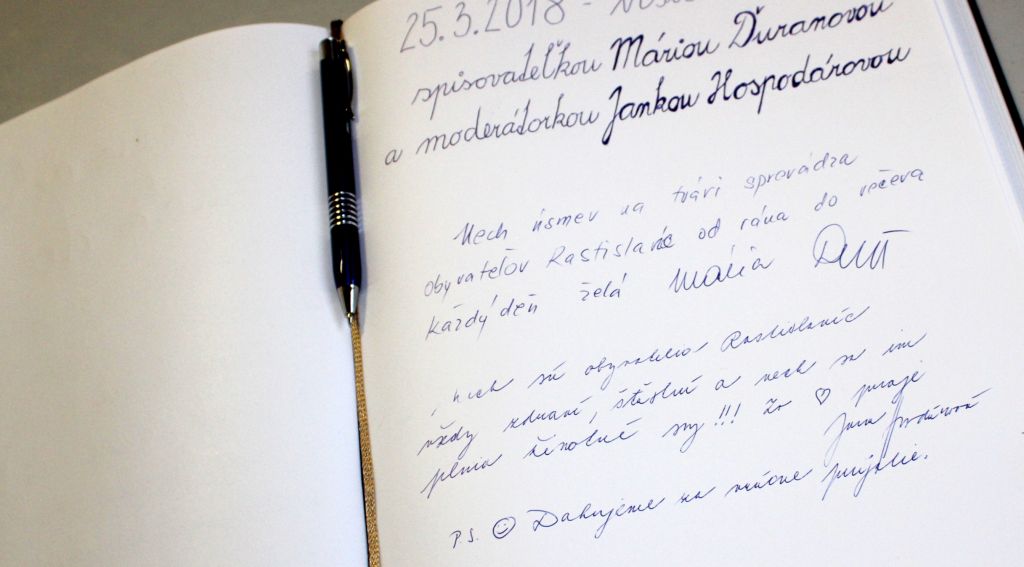 25.3.2018 -
spisovateľkou Máriou Ďuranovou
a moderátorkou Jankou Hospodárovou
Nech úsmev na tvári sprevádza
obyvateľov Rastislavíc od rána do večera
každý deň želá Mária
Nech sú obyvatelia Rastislavíc
vždy zdraví, šťastní a nech sa im
plnia životné sny!!! Zo ♡ praje
Jana
P.S. ☺ Ďakujeme za vrúcne prijatie.